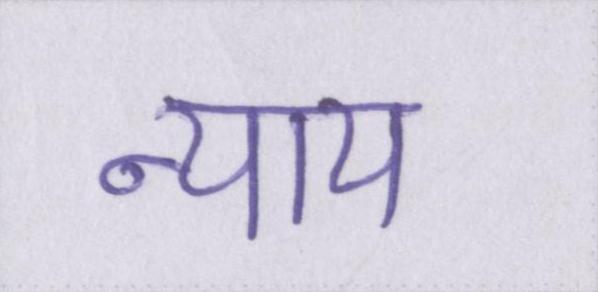 न्याय